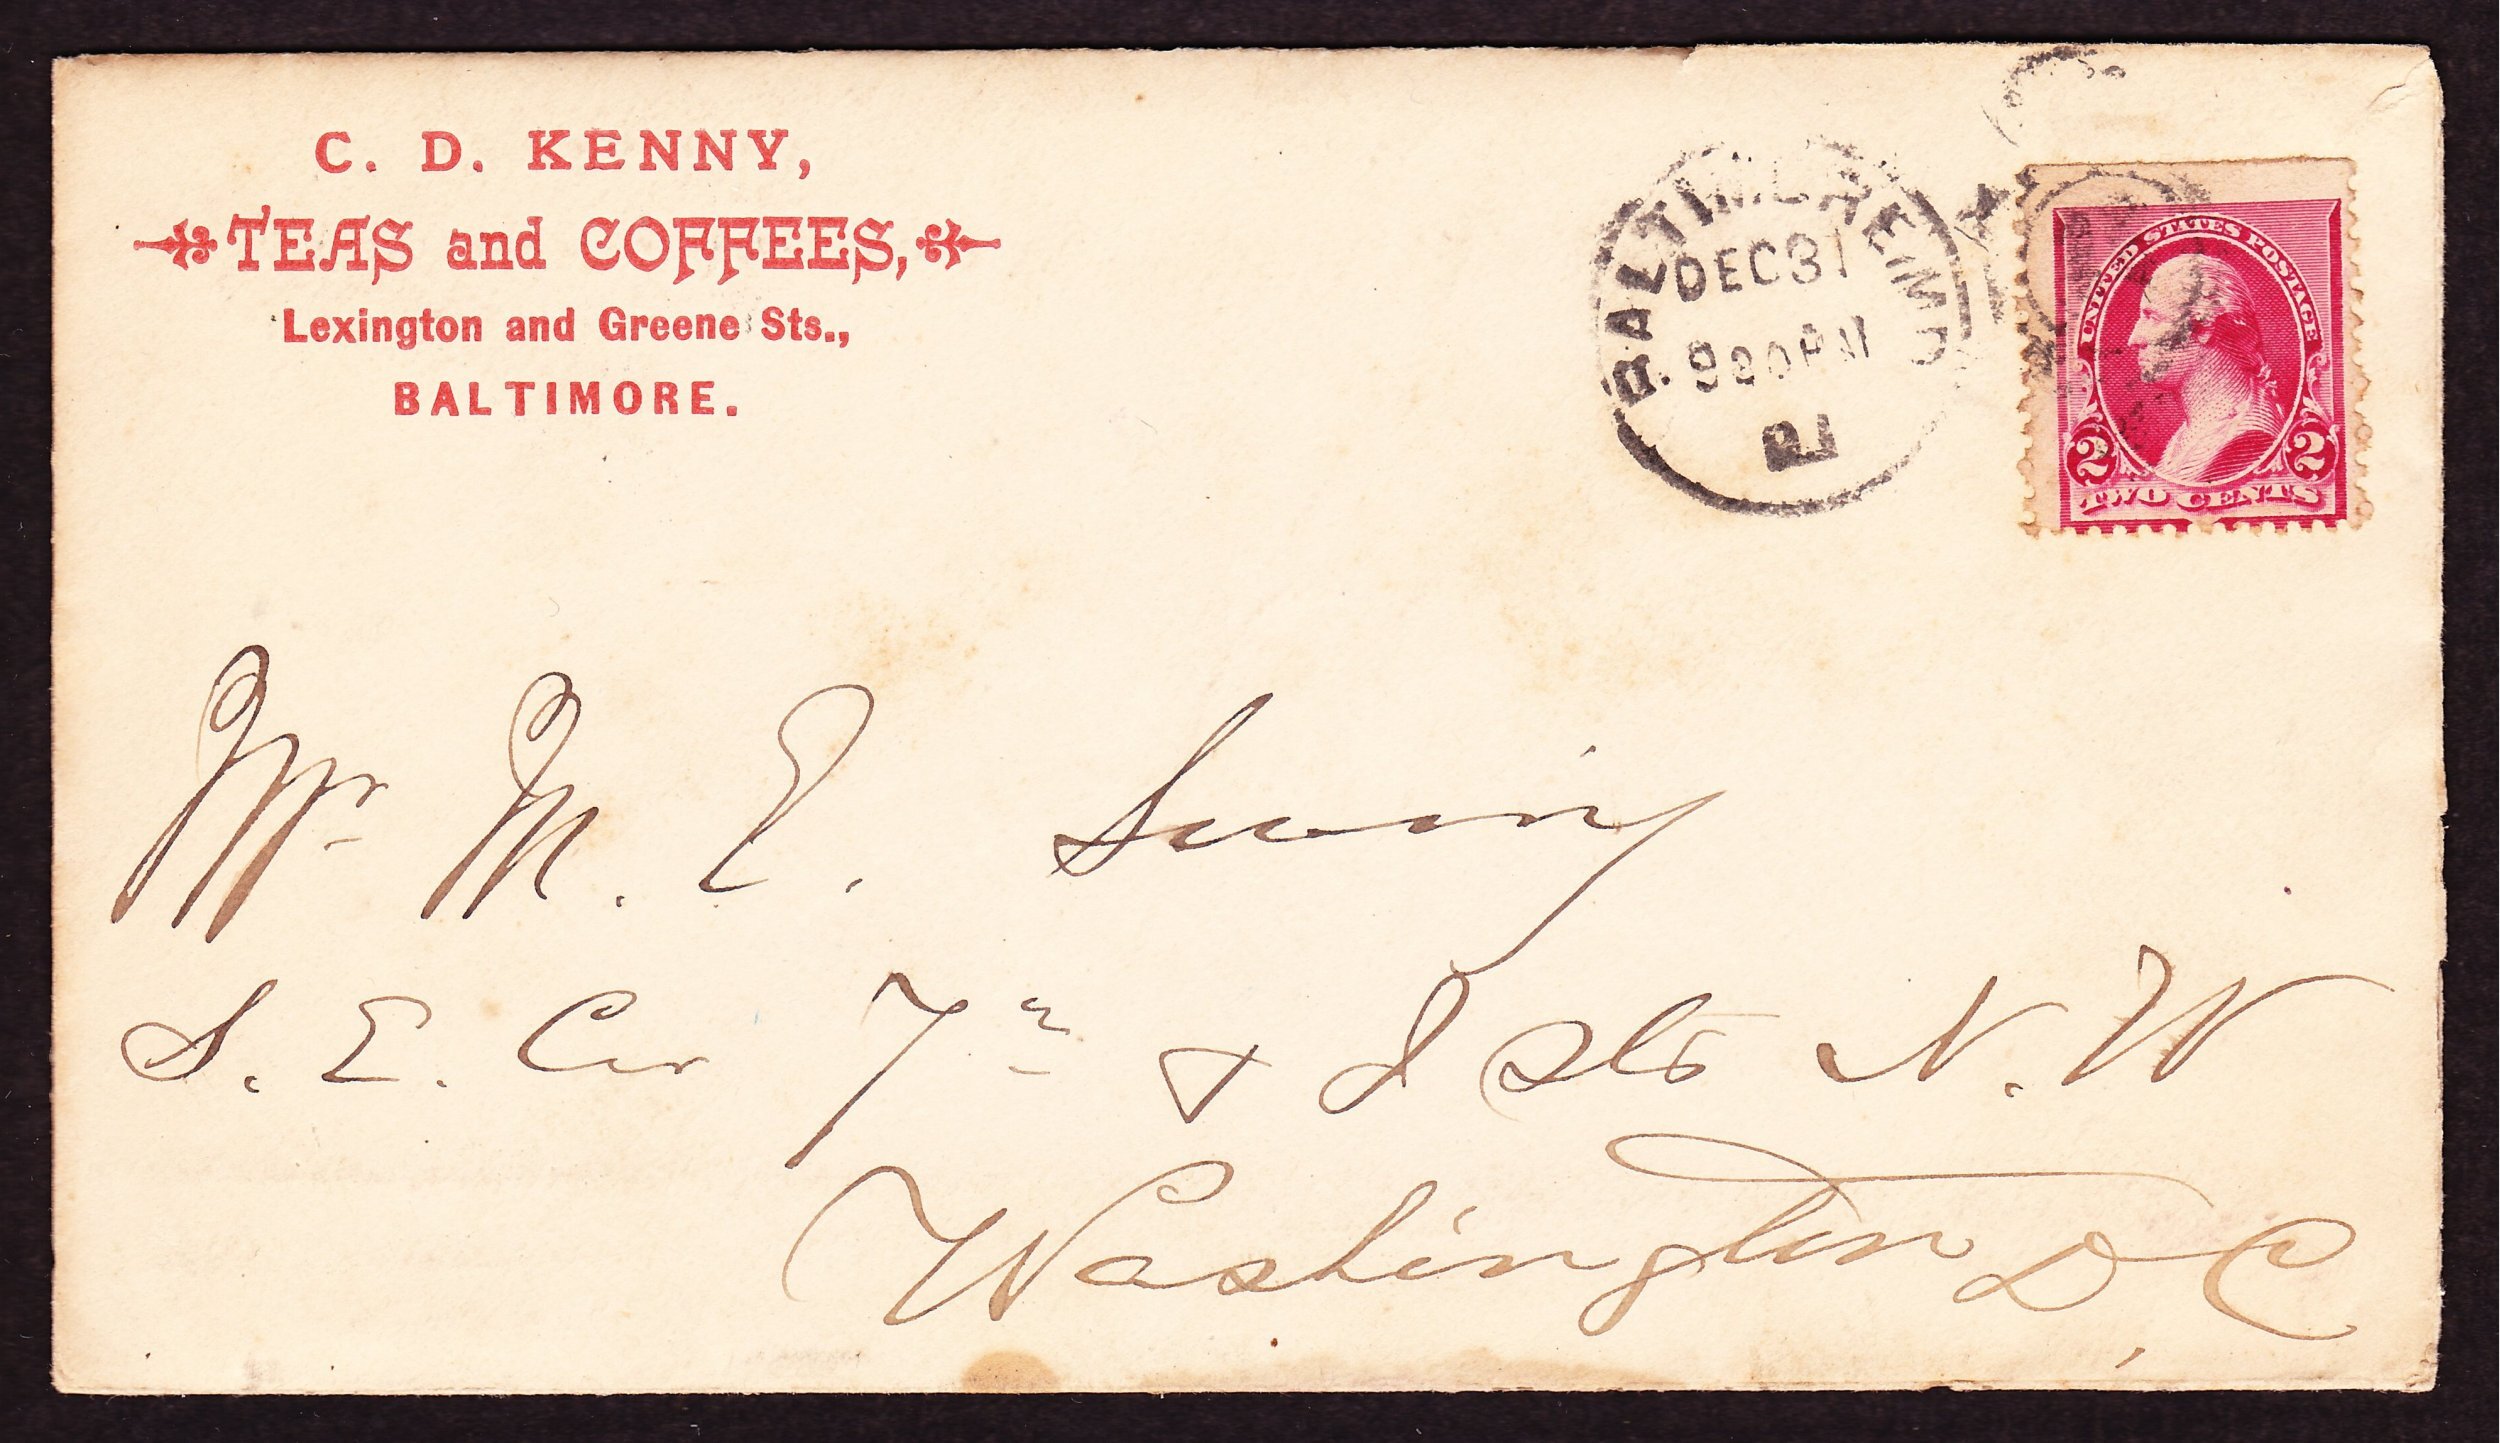 C. D. KENNY,
TEAS and COFFEES,
Lexington and Greene Sts.,
BALTIMORE.
BALTIMORE, MD.
DEC 31
920PM
91
UNITED STATES POSTAGE
2 2
TWO CENTS
Mr M. E. Swing
S. E. Cor 7th & I Sts N. W
Washington, D C